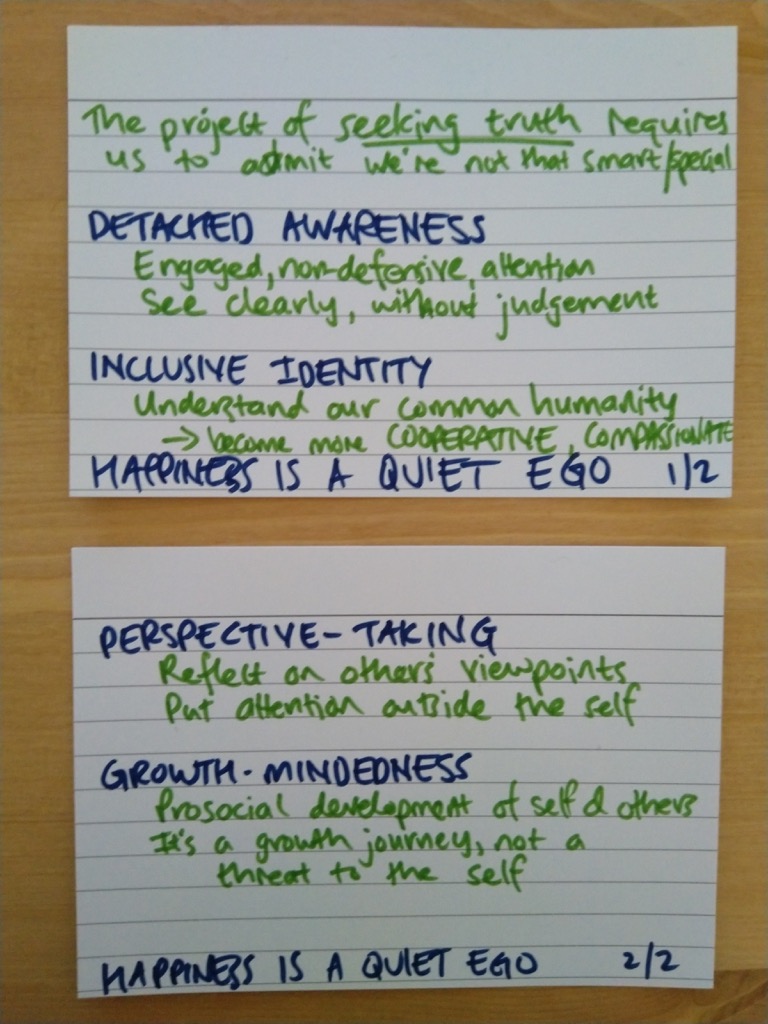 The project of seeking truth requires
us to admit we're not that smart/special
DETACHED AWARENESS
Engaged, non-defensive, attention
See clearly, without judgement
INCLUSIVE IDENTITY
Understand our common humanity
→ become more COOPERATIVE, COMPASSIONATE
HAPPINESS IS A QUIET EGO 1/2
PERSPECTIVE-TAKING
Reflect on others' viewpoints
Put attention outside the self
GROWTH-MINDEDNESS
Prosocial development of self & others
It's a growth journey, not a
threat to the self
HAPPINESS IS A QUIET EGO 2/2